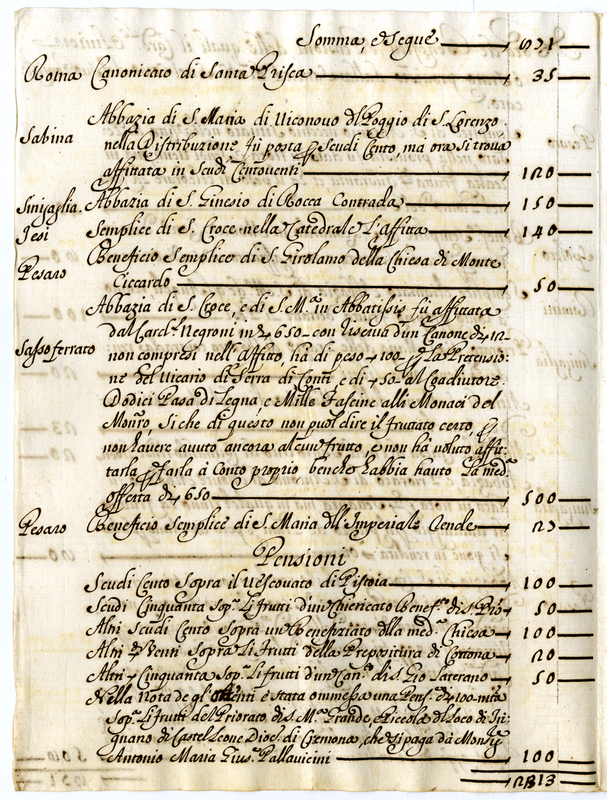 Somma, e Segue
Roma Canonicato di Santa Prisca 35
Abbazia di S. Maria di Uiconovo del Poggio di S. Lorenzo.
Sabina nella Distribuzione fù posta p Scudi Cento, mà ora si trova
affittata in Scudi Centoventi 120
Sinigaglia. Abbazia di S. Ginesio di Rocca Contrada 150
Jesi Semplice di S. Croce nella Catedrale L'affitta 140
Beneficio Semplice di S. Girolamo della Chiesa di Monte
Pesaro Ciccardo 50
Abbazia di S. Croce, e di S. M.a in Abbatissis fù affittata
dal Card.le Negroni in 650 con riserva d'un Canone di 12
Sassoferrato non compresi nell'affitto, hà di peso 100 p la Pretensio:
ne del Vicario di Serra di Conti, e di 50 al Coadiutore.
Dodici Pasa di Legna, e Mille Fascine alli Monaci del
si che di questo non può dire il fruttato certo, p
non havere avuto ancora alcun frutto, e non hà voluto affit:
tarla p farla à Conto proprio, benche habbia hauto La med.
offerta di 650 500
Pesaro Beneficio Semplice di S. Maria dell'Imperiale rende 23
Pensioni
Scudi Cento Sopra il Vescovato di Pistoia 100
Scudi Cinquanta Sop.a Li frutti d'un Chiericato Benef. di S. 50
Altri Scudi Cento Sopra un Benefiziato della med. Chiesa 100
Altri Venti Sopra Li frutti della Prepositura di Cortona 20
Altri Cinquanta Sop.a Li frutti d'un Can. di S. Gio Laterano 50
Nella Nota degl' è stata ommessa una Pens. di 100 m.ta
Sop.a Li frutti del Priorato di S. M.a Grande, e Piccola del Loco di Ju:
guano di Castel Leone Dioc. di Cremona, che si paga dà Monsig.
Antonio Maria Pallavicini 100
2313